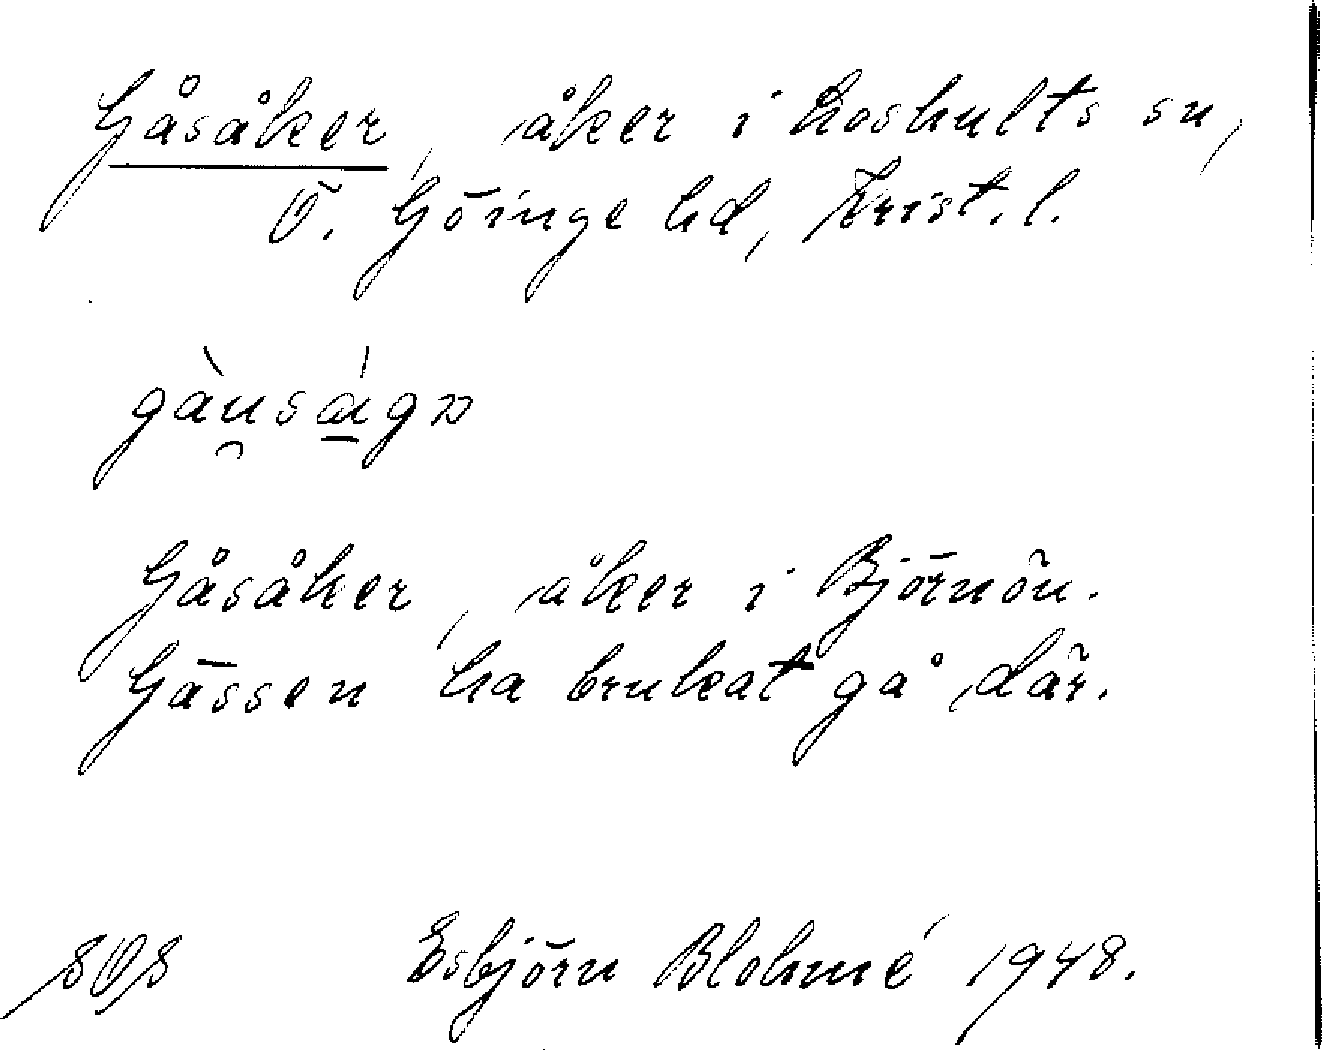 Gåsåker, åker i Loshults sn,
Ö. Göinge hd, Krist. l.
gàu̯sá̱gɒ
Gåsåker, åker i Björnön.
Gässen ha brukat gå där.
SOS Esbjörn Blohmé 1948.